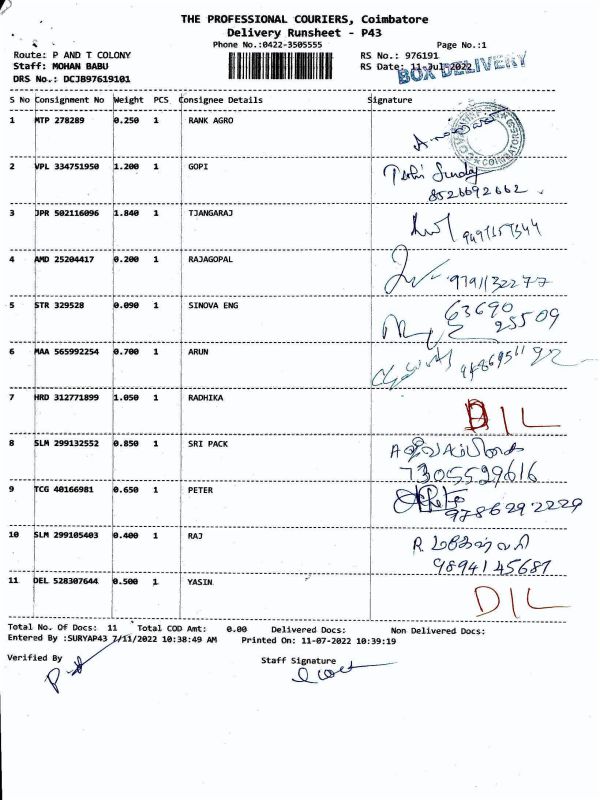 THE PROFESSIONAL COURIERS, Coimbatore
Delivery Runsheet - P43
Phone No.:0422-3505555 Page No.:1
Route: P AND T COLONY RS No.: 976191
Staff: MOHAN BABU RS Date: 11-Jul-2022
BOX DELIVERY
DRS No.: DCJB97619101
S No Consignment No Weight PCS Consignee Details Signature
1 MTP 278289 0.250 1 RANK AGRO
COIMBATORE
2 VPL 334751950 1.200 1 GOPI
8526692662
3 JPR 502116096 1.840 1 TJANGARAJ
4 AMD 25204417 0.200 1 RAJAGOPAL 9791132277
5 STR 329528 0.090 1 SINOVA ENG 63690
25509
6 MAA 565992254 0.700 1 ARUN
7 HRD 312771899 1.050 1 RADHIKA D/L
8 SLM 299132552 0.850 1 SRI PACK
7305529616
9 TCG 40166981 0.650 1 PETER
9786292229
10 SLM 299105403 0.400 1 RAJ
9894145687
11 DEL 528307644 0.500 1 YASIN
D/L
Total No. Of Docs: 11 Total COD Amt: 0.00 Delivered Docs: Non Delivered Docs:
Entered By :SURYAP43 7/11/2022 10:38:49 AM Printed On: 11-07-2022 10:39:19
Verified By Staff Signature